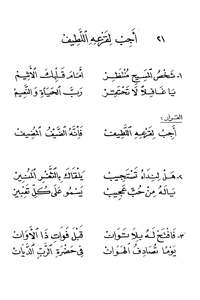 ٢١ أَجِبْ لِقَرْعِهِ اللَّطِيفْ
١- شَخْصُ الْمَسِيحِ مُنْتَظِرْ أَمَامَ قَلْبِكَ الأَثِيمْ
يَا غَافِلاً لاَ تَحْتَقِرْ رَبَّ الْحَيَاةِ وَالنَّعِيمْ
القرار:
أَجِبْ لِقَرْعِهِ اللَّطِيفْ فَإِنَّهُ الضَّيْفُ الْمُضِيفْ
٢- هَلْ لِنِدَاهُ تَسْتَجِيبْ يَلْقَاكَ بِالثَّغْرِ
يَالَهُ مِنْ حُبٍّ عَجِيبْ يَسْمُو عَلَى كُلِّ
٣- فَافْتَحْ لَهُ بِلاَ تَوَانْ قَبْلَ فَوَاتِ ذَا الأَوَانْ
يَوْمًا تُصَادِفُ الْهَوَانْ فِي حَضْرَةِ الرَّبِّ الدَّيَّانْ